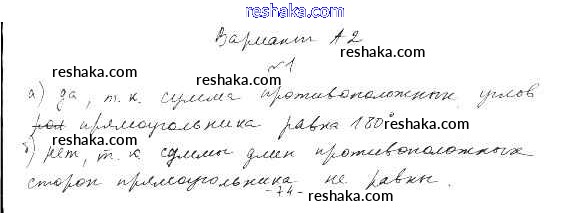 reshaka.com
Вариант А2
reshaka.com
№1
reshaka.com reshaka.com
а) да, т.к. сумма противоположных углов
прямоугольника равна 180°
reshaka.com reshaka.com
б) нет, т.к суммы длин противоположных
сторон прямоугольника не равны.
-74-
reshaka.com reshaka.com